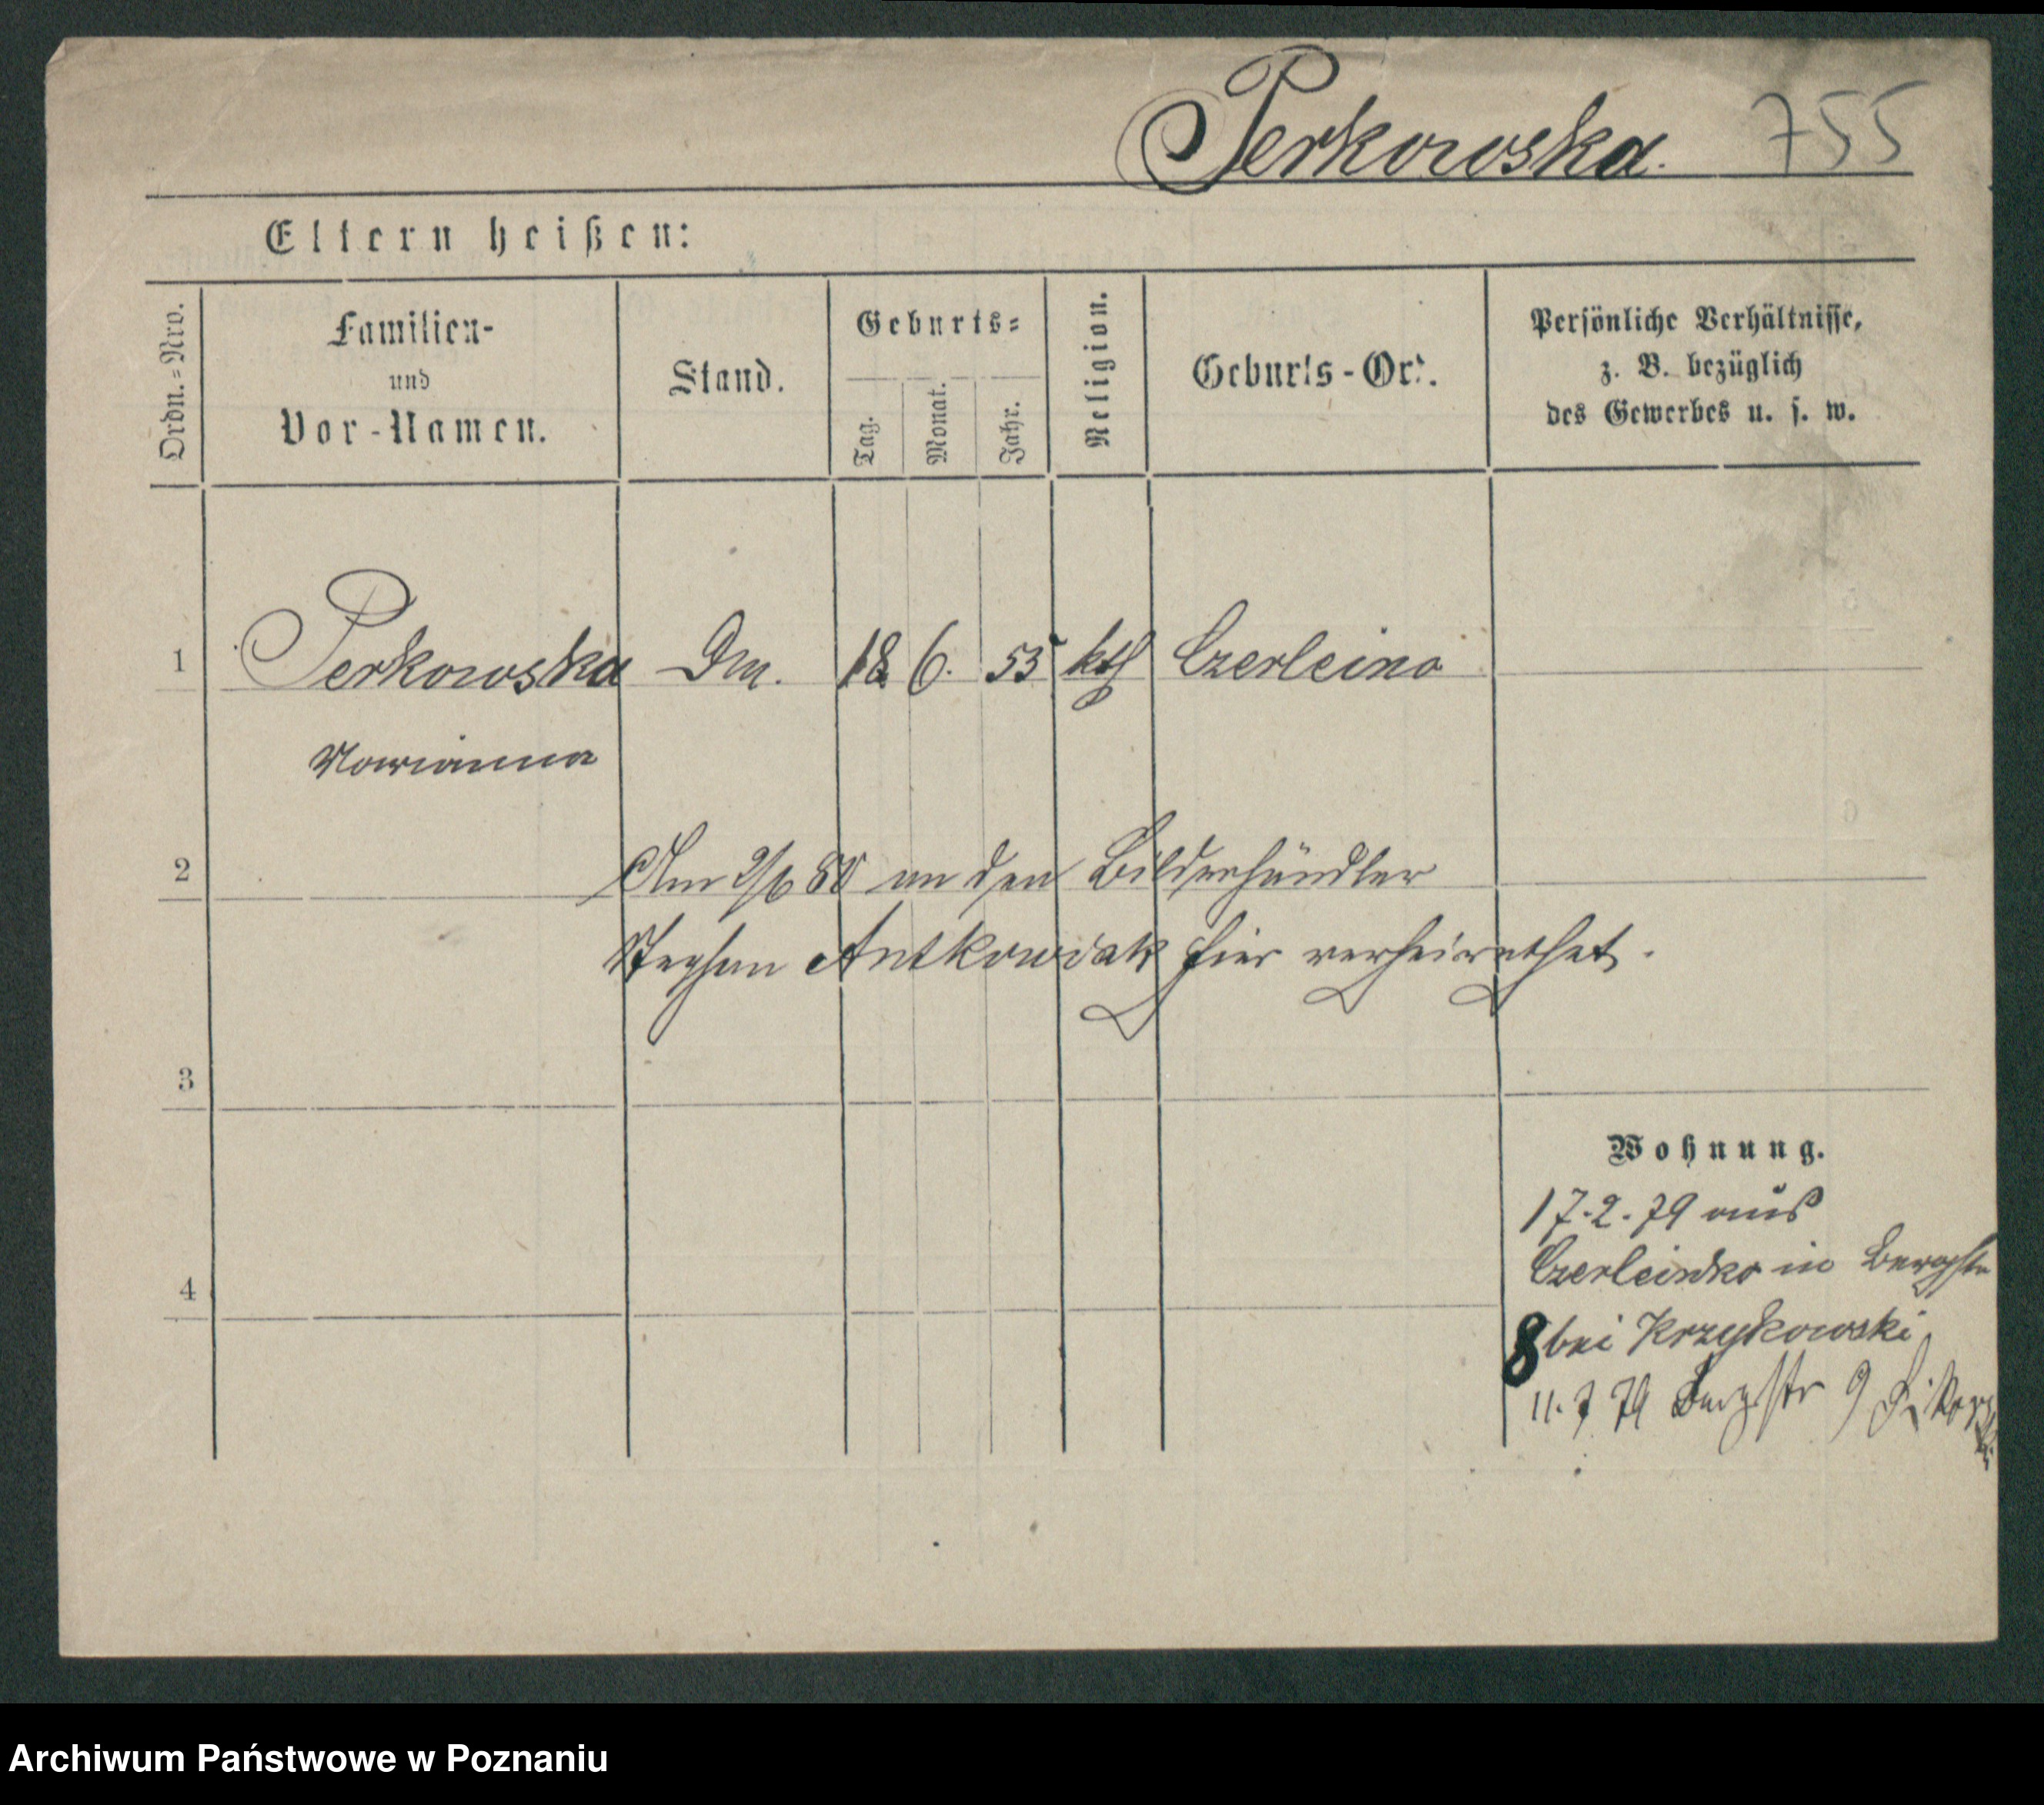 Perkowska. 755
Eltern heißen:
Ordn.=Nro.
Familien-
und
Vor-Namen.
Stand.
Geburts=
Tag.
Monat.
Jahr.
Religion.
Geburts-Ort.
Persönliche Verhältnisse,
z. B. bezüglich
des Gewerbes u. s. w.
1 Perkowska Dm. 18 6. 55 kth Czerleino
Marianna
2
Am 9/6 80 an den Bilderhändler
Stephan Antkowiak hier verheirathet.
3
Wohnung.
17.2.79 aus
Czerleinko in Bergstr
4
8 bei Krzykowski
11.7 79 Bergstr 9
Archiwum Państwowe w Poznaniu